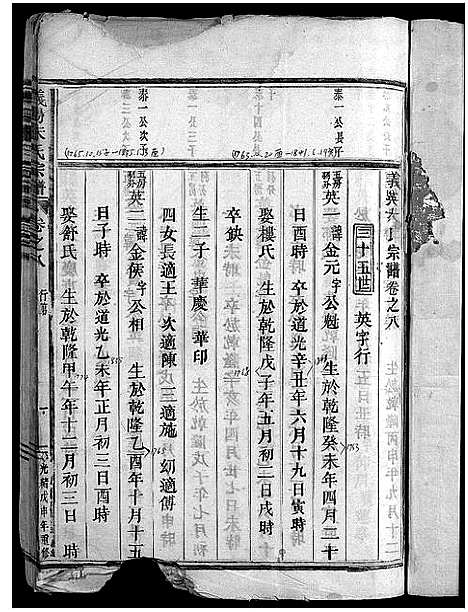 宗譜卷之八
三十五世 英字行
泰一公長子
英一 諱金元 字公魁 生於乾隆癸未年四月二十
日酉時 卒於道光辛丑年六月十九日寅時
娶樓氏 生於乾隆戊子年五月初二日戌時
卒缺
生二子 華慶 華印
四女長適王 次適陳 三適施 幼適傅
泰一公次子
英二 諱金侯 字公相 生於乾隆乙酉年十月十五
日子時 卒於道光乙未年正月初三日酉時
娶舒氏 生於乾隆甲午年十二月初三日 時
宗譜 卷之八 行第 一 光緒戊申年重修